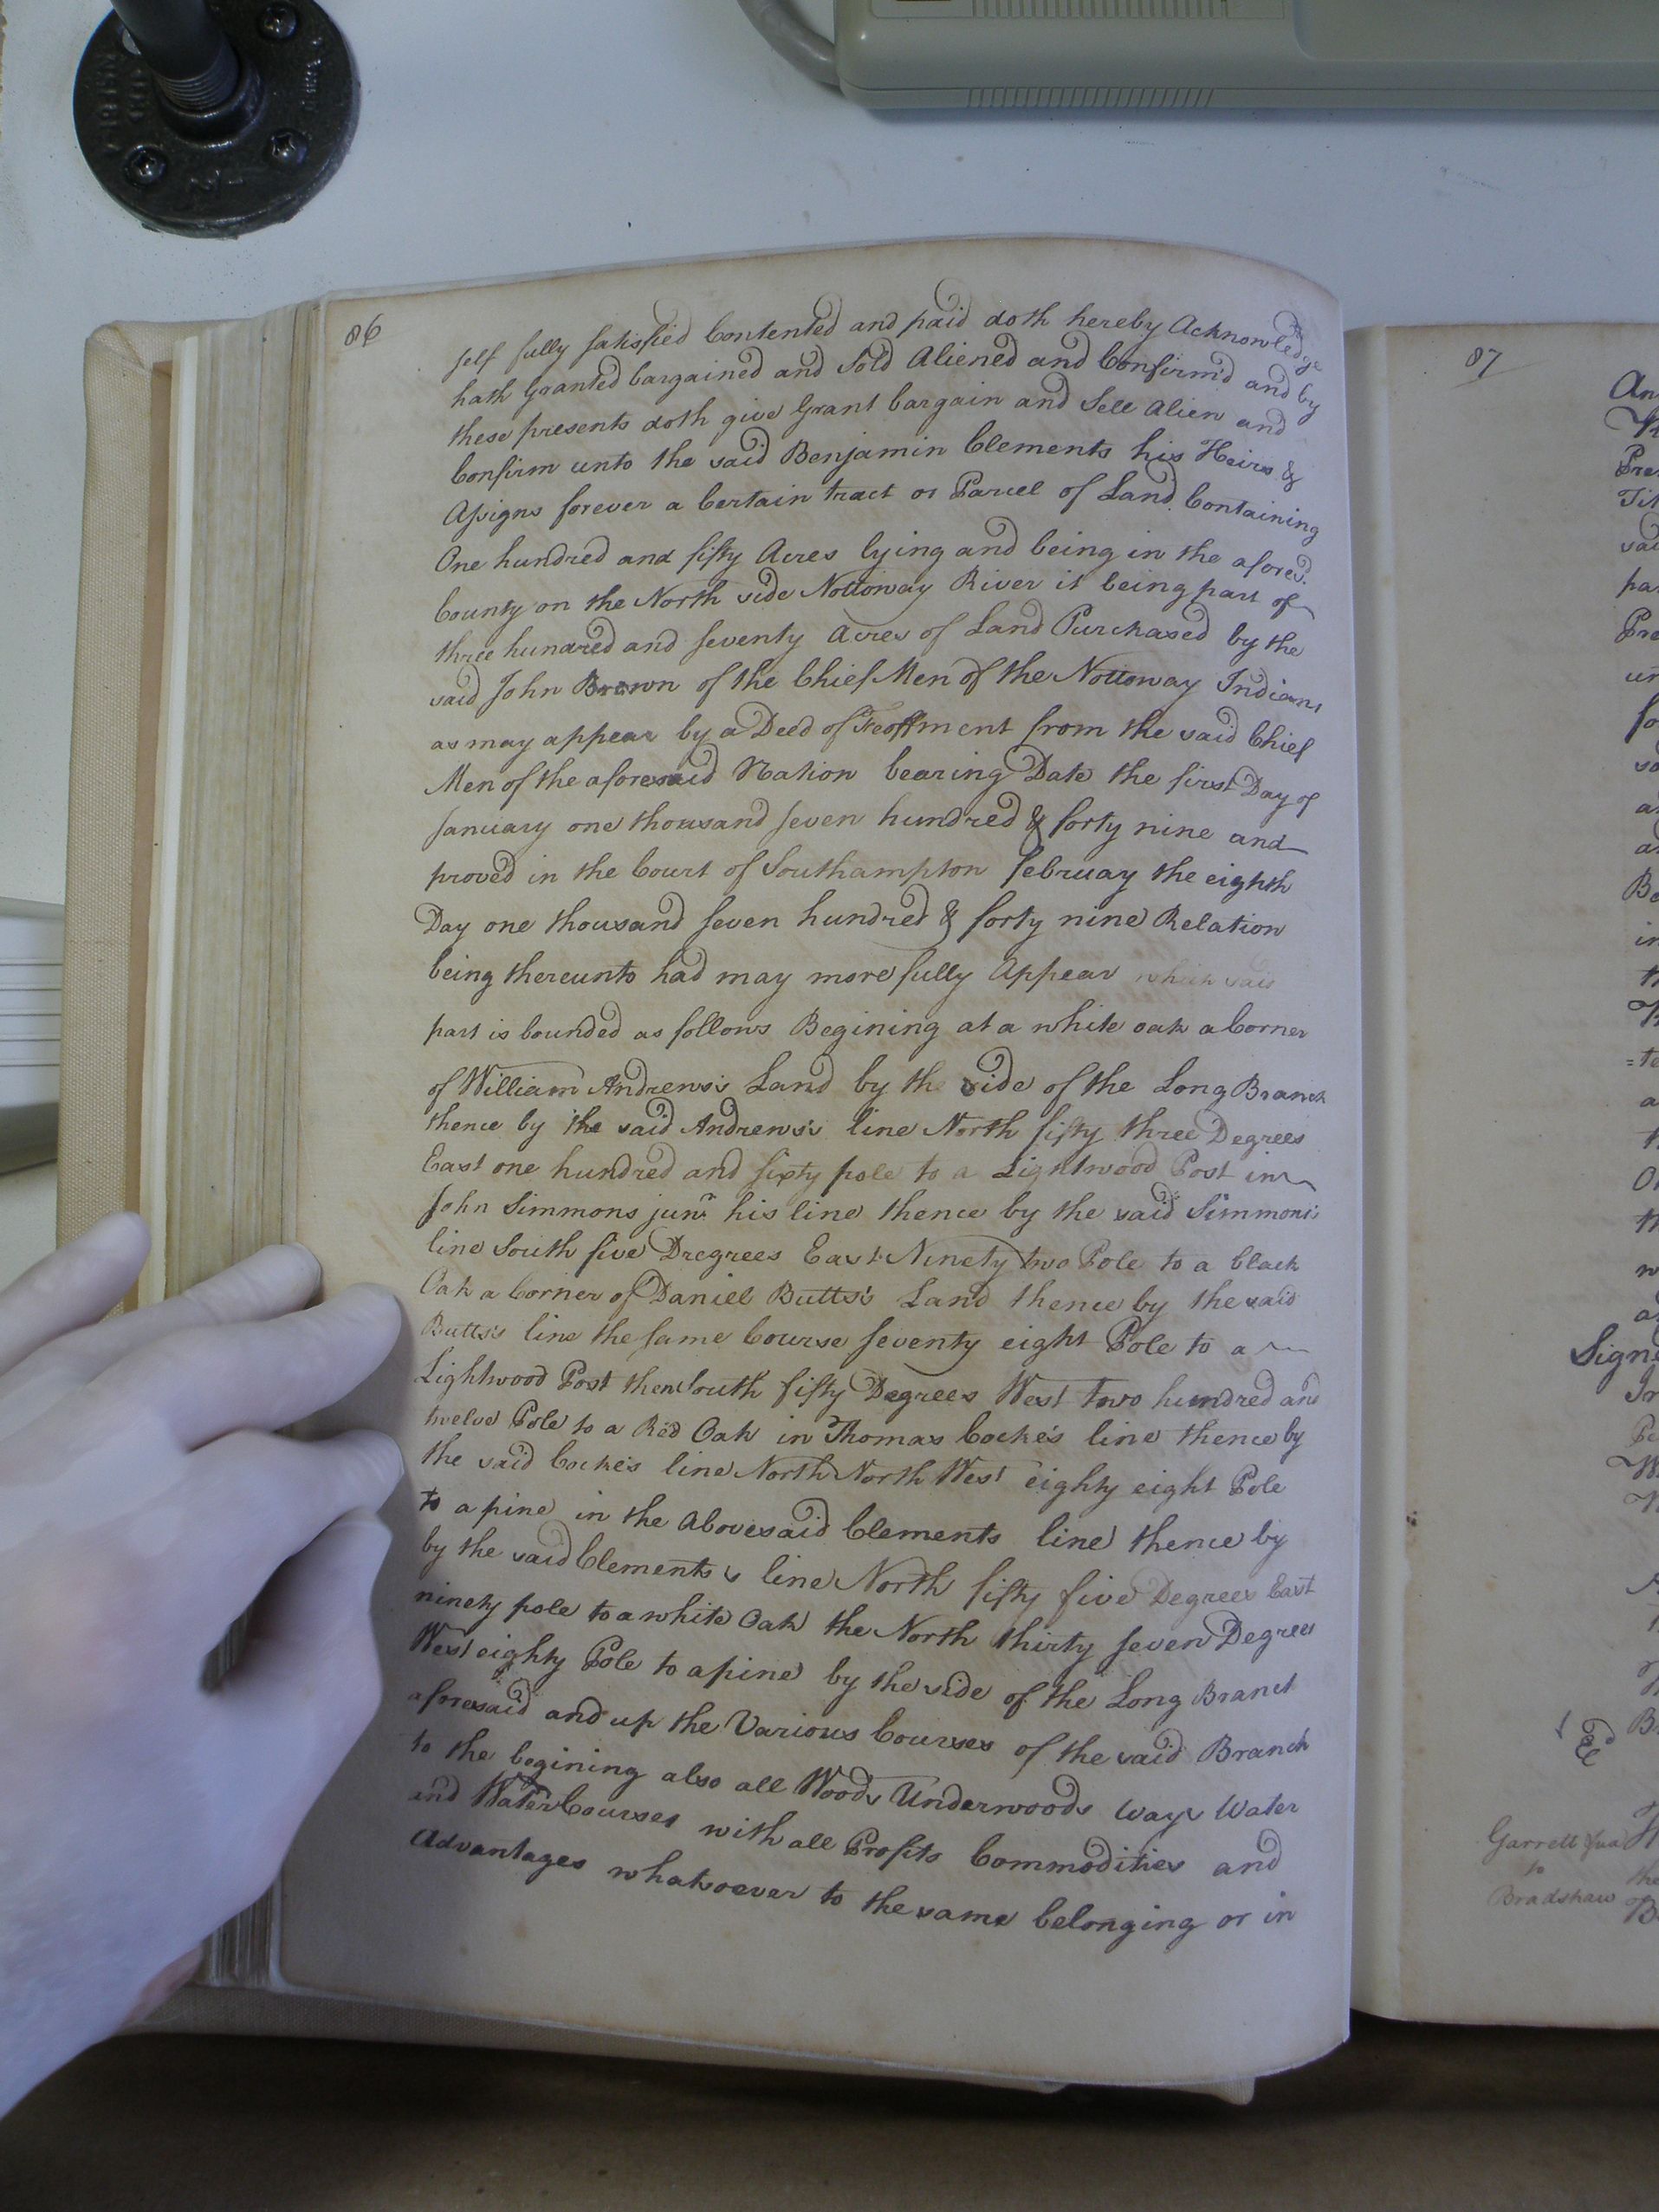 86
self fully satisfied Contented and paid doth hereby Acknowledge
hath Granted bargained and Sold Aliened and Confirm'd and by
these presents doth give Grant bargain and Sell Alien and
Confirm unto the said Benjamin Clements his Heirs &
Assigns forever a Certain tract or Parcel of Land Containing
One hundred and fifty Acres lying and being in the aforesd.
County on the North side Nottoway River it being part of
three hundred and seventy Acres of Land Purchased by the
said John Brown of the Chief Men of the Nottoway Indians
as may appear by a Deed of Feoffment from the said Chief
Men of the aforesaid Nation bearing Date the first Day of
January one thousand seven hundred & forty nine and
proved in the Court of Southampton february the eighth
Day one thousand seven hundred & forty nine Relation
being thereunto had may more fully Appear which said
part is bounded as follows Begining at a white oak a Corner
of William Andrews's Land by the side of the Long Branch
thence by the said Andrews's line North fifty three Degrees
East one hundred and sixty pole to a Lightwood Post in
John Simmons junr. his line thence by the said Simmons's
line South five Dregrees East Ninety two Pole to a black
Oak a Corner of Daniel Butts's Land thence by the said
Butts's line the same Course seventy eight Pole to a
Lightwood Post then South fifty Degrees West two hundred and
twelve Pole to a Red Oak in Thomas Cocke's line thence by
the said Cocke's line North North West eighty eight Pole
to a pine in the Abovesaid Clements line thence by
by the said Clements's line North fifty five Degrees East
ninety pole to a white Oak the North thirty seven Degrees
West eighty Pole to a pine by the side of the Long Branch
aforesaid and up the Various Courses of the said Branch
to the begining also all Woods Underwoods Ways Water
and Water Courses with all Profits Commodities and
Advantages whatsoever to the same belonging or in
87
Pre
said
Pre
in
Signd
Ed
Garrett
to
Bradshaw
the